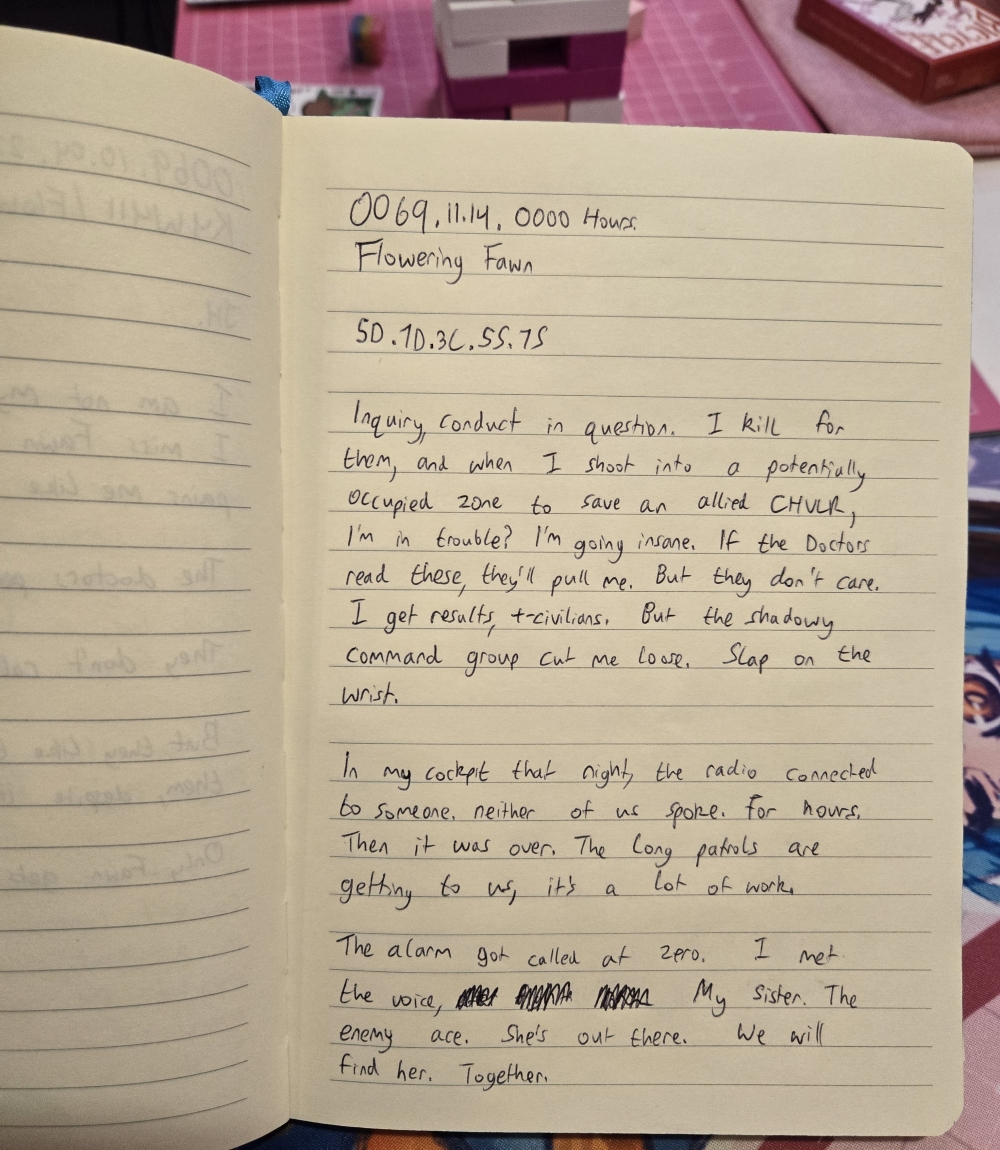 0069.11.14. 0000 Hours.
Flowering Fawn
5D.7D.3C.5S.7S
Inquiry, conduct in question. I kill for
them, and when I shoot into a potentially
occupied zone to save an allied CHVLR,
I'm in trouble? I'm going insane. If the Doctors
read these, they'll pull me. But they don't care.
I get results, t-civilians. But the shadowy
command group cut me loose. Slap on the
wrist.
In my cockpit that night, the radio connected
to someone. neither of us spoke. For hours.
Then it was over. The long patrols are
getting to us, it's a lot of work.
The alarm got called at zero. I met
the voice, My sister. The
enemy ace. She's out there. We will
find her. Together.